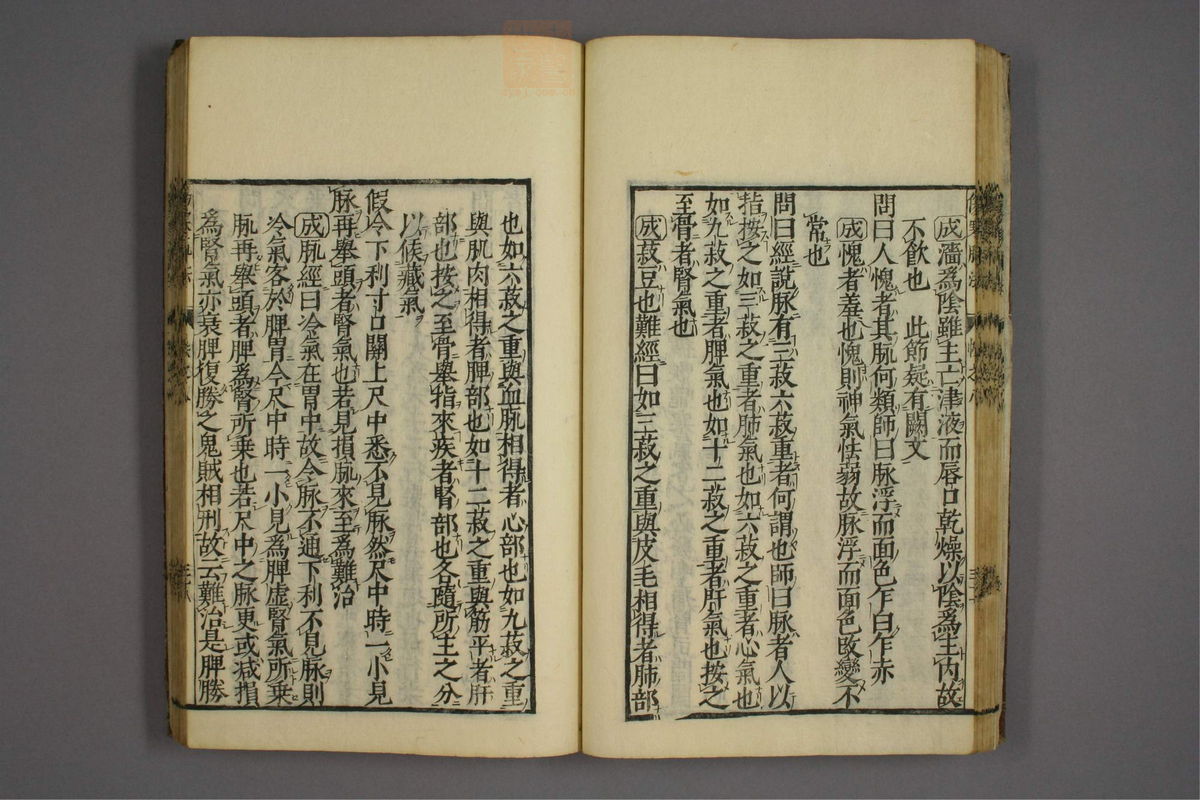 成潘爲陰雖主亡津液而唇口乾燥以陰爲主內故
不飲也　此節疑有闕文
問曰人愧者其脈何類師曰脉浮而面色乍白乍赤
成愧者羞也愧則神氣怯弱故脉浮而面色改變不
常也
問曰經說脉有三菽六菽重者何謂也師曰脉者人以
指按之如三菽之重者肺氣也如六菽之重者心氣也
如九菽之重者脾氣也如十二菽之重者肝氣也按之
至骨者腎氣也
成菽豆也難經曰如三菽之重與皮毛相得者肺部
也如六菽之重與血脈相得者心部也如九菽之重
與肌肉相得者脾部也如十二菽之重與筋平者肝
部也按之至骨舉指來疾者腎部也各隨所主之分
以候藏氣
假令下利寸口關上尺中悉不見脈然尺中時一小見
脉再舉頭者腎氣也若見損脈來至爲難治
成脈經曰冷氣在胃中故令脉不通下利不見脉則
冷氣客於脾胃今尺中時一小見爲脾虛腎氣所乘
脈再舉頭者脾爲腎所乘也若尺中之脉更或減損
爲腎氣亦衰脾復勝之鬼賊相刑故云難治是脾勝